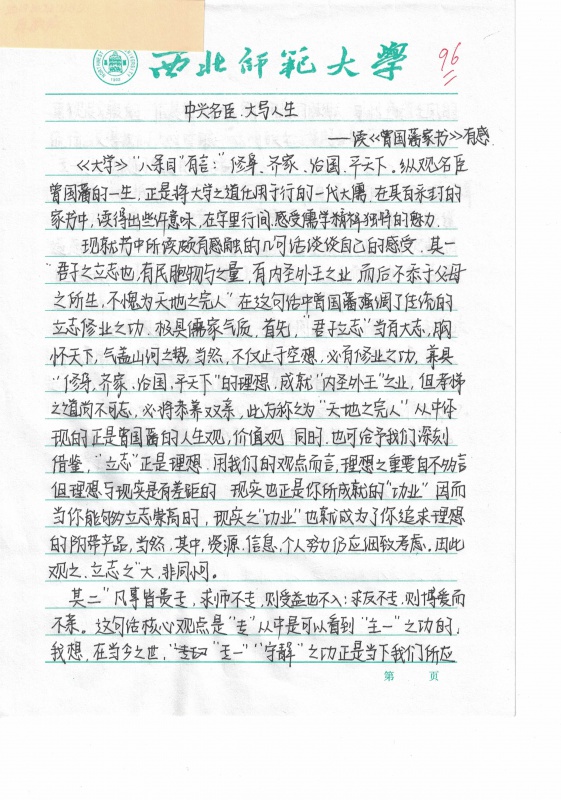 西北师范大学
96
中兴名臣.大写人生
——读《曾国藩家书》有感
《大学》"八条目"有言:"修身、齐家、治国、平天下。纵观名臣
曾国藩的一生,正是将大学之道化用于行的一代大儒,在其百余封的
家书中,读得出些许意味,在字里行间,感受儒学精粹独特的魅力.
现就书中所读颇有感触的几句话谈谈自己的感受.其一
"君子之立志也,有民胞物与之量,有内圣外王之业,而后不忝于父母
之所生,不愧为天地之完人"在这句话中曾国藩强调了传统的
立志修业之功,极具儒家气质,首先,"君子立志"当有大志,胸
怀天下,气盖山河之势,当然,不仅止于空想,必有修业之功,兼具
"修身,齐家,治国,平天下"的理想,成就"内圣外王"之业,但孝悌
之道尚不可忘,必将奉养双亲,此方称之为"天地之完人"从中体
现的正是曾国藩的人生观,价值观 同时,也可给予我们深刻
借鉴,"立志"正是理想.用我们的观点而言,理想之重要自不多言
但理想与现实是有差距的 现实也正是你所成就的"功业"因而
当你能够立志崇高的,现实之"功业"也就成为了你追求理想
的附带产品,当然,其中,资源.信息.个人努力仍应细致考虑。由此
观之,立志之"大,非同小可。
其二"凡事皆贵专,求师不专,则受益也不入;求友不专,则博爱而
不亲。这句话核心观点是"专"从中是可以看到"主一"之功的,
我想,在当今之世,"主一""守静"之功正是当下我们所应
第 页